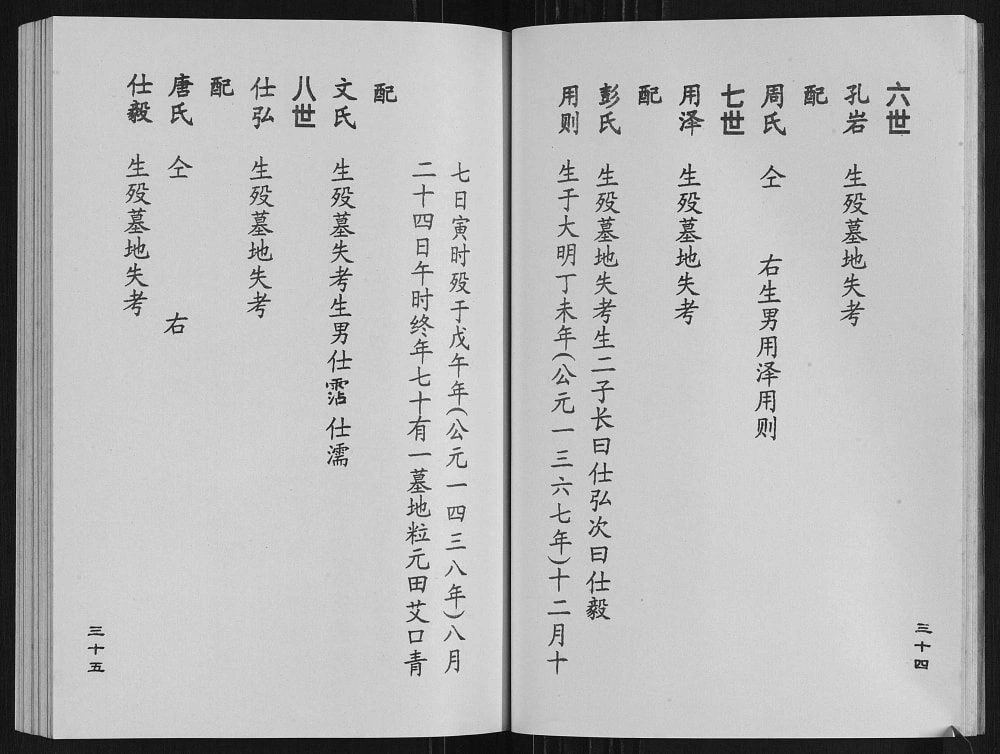 六世
孔岩 生殁墓地失考
配
周氏 仝 右生男用泽用则
七世
用泽 生殁墓地失考
配
彭氏 生殁墓地失考生二子长曰仕弘次曰仕毅
用则 生于大明丁未年(公元一三六七年)十二月十
三十四
七日寅时殁于戊午年(公元一四三八年)八月
二十四日午时终年七十有一墓地粒元田艾口青
配
文氏 生殁墓失考生男仕霑 仕濡
八世
仕弘 生殁墓地失考
配
唐氏 仝 右
仕毅 生殁墓地失考
三十五